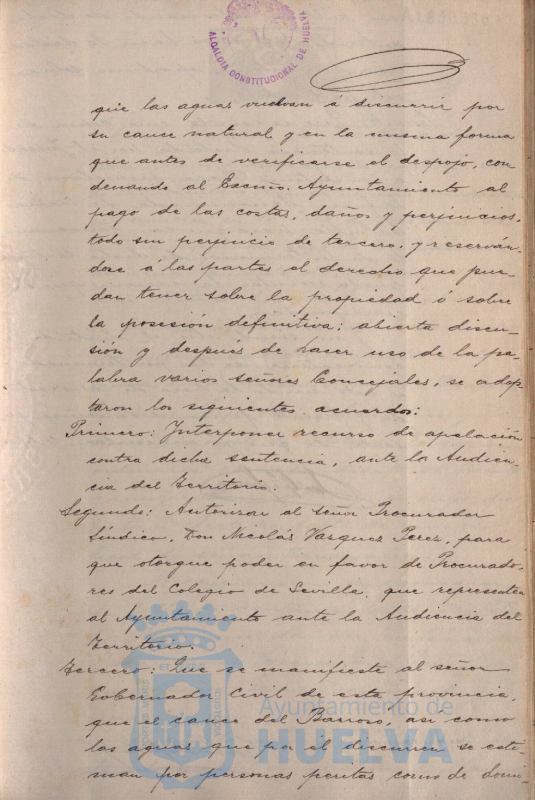 ALCALDIA CONSTITUCIONAL DE HUELVA
que las aguas vuelvan á discurrir por
su cauce natural y en la misma forma
que antes de verificarse el despojo, con
denando al Excmo. Ayuntamiento al
pago de las costas, daños y perjuicios,
todo sin perjuicio de tercero, y reserván-
dose á las partes el derecho que pue-
dan tener sobre la propiedad ó sobre
la posesión definitiva; abierta discu-
sión y después de hacer uso de la pa-
labra varios señores Concejales, se adop
taron los siguientes acuerdos:
Primero: Interponer recurso de apelación
contra dicha sentencia, ante la Audien-
cia del Territorio.
Segundo: Autorizar al señor Procurador
Síndico, Don Nicolás Vazquez Perez, para
que otorgue poder en favor de Procurado-
res del Colegio de Sevilla, que representen
al Ayuntamiento ante la Audiencia del
Territorio.
Tercero: Que se manifieste al señor
Gobernador Civil de esta provincia,
que el cauce del Barroso, así como
las aguas que por el discurren se esti-
man por personas peritas como de domi-
Ayuntamiento de
HUELVA